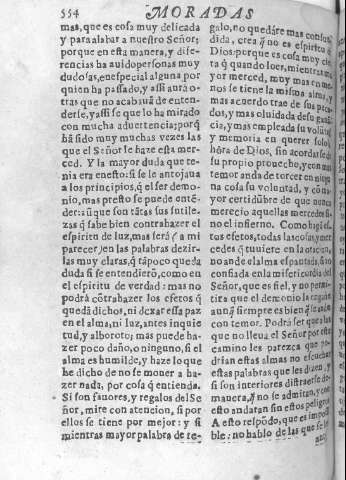 554 MORADAS
mas, que es cosa muy delicada
y para alabar a nuestro Señor;
porque en esta manera, y dife-
rencias ha auido personas muy
dudosas, en especial alguna por
quien ha passado, y assi aurà o-
tras que no acabauã de enten-
derse, y assi se que lo ha mirado
con mucha aduertencia; porq̃
hã sido muy muchas vezes las
que el Señor le haze esta mer-
ced. Y la mayor duda que te-
nia era en esto: si se le antojaua
a los principios, q̃ el ser demo-
nio, mas presto se puede entẽ-
der: aũque son tãtas sus sutile-
zas, q̃ sabe bien contrahazer el
espiritu de luz, mas serà (a mi
parecer) en las palabras dezir-
las muy claras, q̃ tãpoco quede
duda si se entendierõ, como en
el espiritu de verdad: mas no
podrà cõtrabazer los efetos q̃
quedã dichos, ni dexar essa paz
en el alma, ni luz, antes inquie
tud, y alboroto; mas puede ha-
zer poco daño, o ninguno, si el
alma es humilde, y haze lo que
he dicho de no se mouer a ha-
zer nada, por cosa q̃ entienda.
Si son fauores, y regalos del Se
ñor, mire con atencion, si por
ellos se tiene por mejor: y si
mientras mayor palabra de re-
galo, no quedàre mas confun-
dida, crea q̃ no es espiritu de
Dios: porque es cosa muy cier
ta q̃ quando lo es, mientras ma
yor merced, muy mas en me-
nos se tiene la misma alma, y
mas acuerdo trae de sus peca-
dos, y mas oluidada de su ganã
cia, y mas empleada su volũtad
y memoria en querer solo la
hõra de Dios, sin acordarse de
su propio prouecho, y con mas
temor anda de torcer en ningu
na cosa su voluntad, y cõ ma-
yor certidũbre de que nunca
merecio aquellas mercedes si-
no el infierno. Como hagã es-
tos efetos, todas las cosas, y mer
cedes q̃ tuuiere en la oraciõ,
no ande el alma espantada, sino
confiada en la misericordia del
Señor, que es fiel, y no permi-
tira que el demonio la engañe
aunq̃ siempre es bien se ande
con temor. Podrà ser que a las
que no lleua el Señor por este
camino les parezca que po-
drian estas almas no escuchar
estas palabras que les dizen, y
si son interiores distraerse de
manera, q̃ no se admitan, y con
esto andaran sin estos peligros.
A esto respõdo, que es impossi
ble: no hablo de las que se les